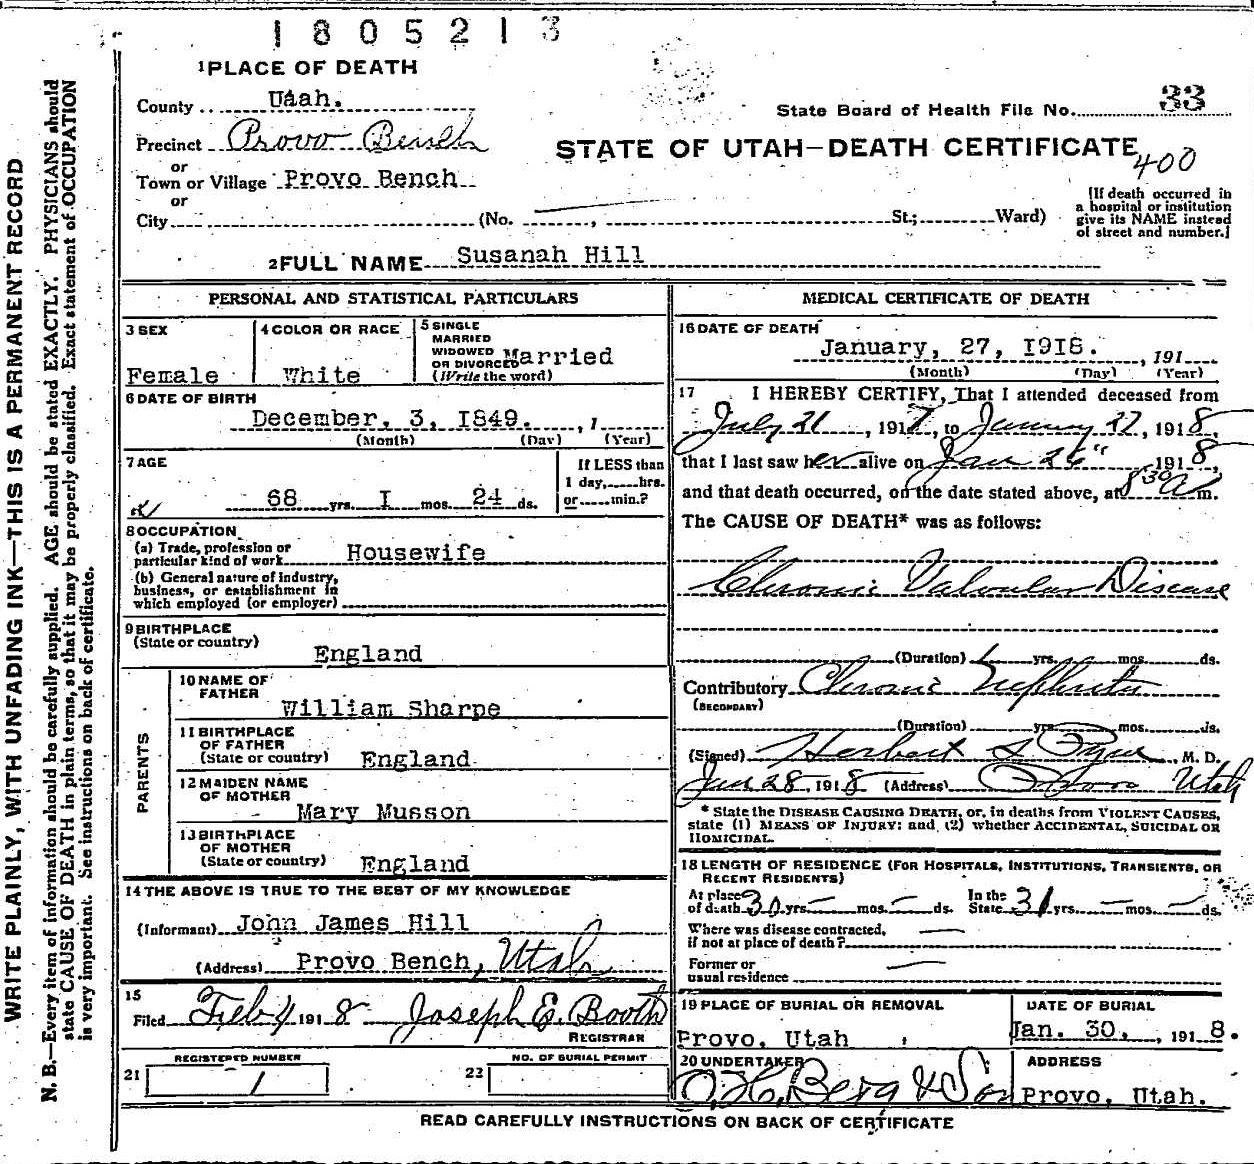 1805213
1 PLACE OF DEATH
County Utah.
State Board of Health File No. 33
Precinct Provo Bench
STATE OF UTAH—DEATH CERTIFICATE
400
or
Town or Village Provo Bench
or
City (No. , St.; Ward)
[If death occurred in
a hospital or institution
give its NAME instead
of street and number.]
2 FULL NAME Susanah Hill
PERSONAL AND STATISTICAL PARTICULARS
3 SEX
Female
4 COLOR OR RACE
White
5 SINGLE
MARRIED
WIDOWED
OR DIVORCED Married
(Write the word)
6 DATE OF BIRTH
December, 3, I849. , 1
(Month) (Day) (Year)
7 AGE
68 yrs. I mos. 24 ds.
If LESS than
1 day, hrs.
or min.?
8 OCCUPATION
(a) Trade, profession or
particular kind of work Housewife
(b) General nature of industry,
business, or establishment in
which employed (or employer)
9 BIRTHPLACE
(State or country)
England
PARENTS
10 NAME OF
FATHER
William Sharpe
11 BIRTHPLACE
OF FATHER
(State or country) England
12 MAIDEN NAME
OF MOTHER
Mary Musson
13 BIRTHPLACE
OF MOTHER
(State or country) England
14 THE ABOVE IS TRUE TO THE BEST OF MY KNOWLEDGE
(Informant) John James Hill
(Address) Provo Bench, Utah
15
Filed Feb 4 1918 Joseph E. Booth
REGISTRAR
REGISTERED NUMBER
21 1
NO. OF BURIAL PERMIT
22
MEDICAL CERTIFICATE OF DEATH
16 DATE OF DEATH
January, 27, I918. , 191
(Month) (Day) (Year)
17 I HEREBY CERTIFY, That I attended deceased from
July 21, 1917, to January 27, 1918,
that I last saw her alive on Jan 26", 1918,
and that death occurred, on the date stated above, at 8 30 A m.
The CAUSE OF DEATH* was as follows:
Chronic Valvular Disease
(Duration) yrs. mos. ds.
Contributory Chronic Nephritis
(SECONDARY)
(Duration) yrs. mos. ds.
(Signed) Herbert S Pyne, M. D.
Jan 28, 1918 (Address) Provo Utah
* State the DISEASE CAUSING DEATH, or, in deaths from VIOLENT CAUSES,
state (1) MEANS OF INJURY; and (2) whether ACCIDENTAL, SUICIDAL OR
HOMICIDAL.
18 LENGTH OF RESIDENCE (FOR HOSPITALS, INSTITUTIONS, TRANSIENTS, OR
RECENT RESIDENTS)
At place
of death 30 yrs. — mos. — ds. In the
State 31 yrs. — mos. — ds.
Where was disease contracted,
if not at place of death? —
Former or
usual residence —
19 PLACE OF BURIAL OR REMOVAL
Provo, Utah
DATE OF BURIAL
Jan. 30, , 1918.
20 UNDERTAKER
O. H. Berg & Son
ADDRESS
Provo, Utah.
READ CAREFULLY INSTRUCTIONS ON BACK OF CERTIFICATE
WRITE PLAINLY, WITH UNFADING INK—THIS IS A PERMANENT RECORD
N. B.—Every item of information should be carefully supplied. AGE should be stated EXACTLY. PHYSICIANS should
state CAUSE OF DEATH in plain terms, so that it may be properly classified. Exact statement of OCCUPATION
is very important. See instructions on back of certificate.